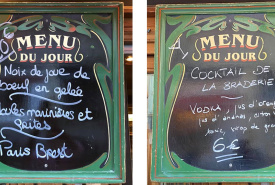 MENU
DU JOUR
Noix de joue de
boeuf en gelée
Moules marinières et
frites
Paris Brest
MENU
DU JOUR
COCKTAIL DE
LA BRADERIE
VODKA, jus d'
jus d'ananas, citron
6€